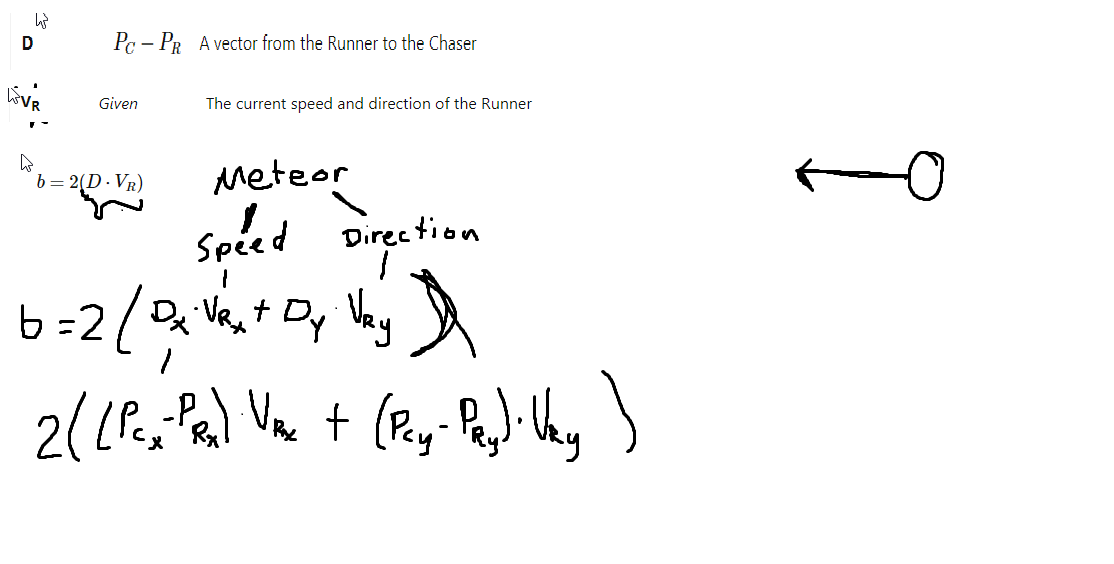 D P_C − P_R A vector from the Runner to the Chaser
V_R Given The current speed and direction of the Runner
b = 2(D · V_R)
Meteor
Speed Direction
b = 2(D_x · V_Rx + D_y · V_Ry)
2((P_Cx - P_Rx) · V_Rx + (P_Cy - P_Ry) · V_Ry)